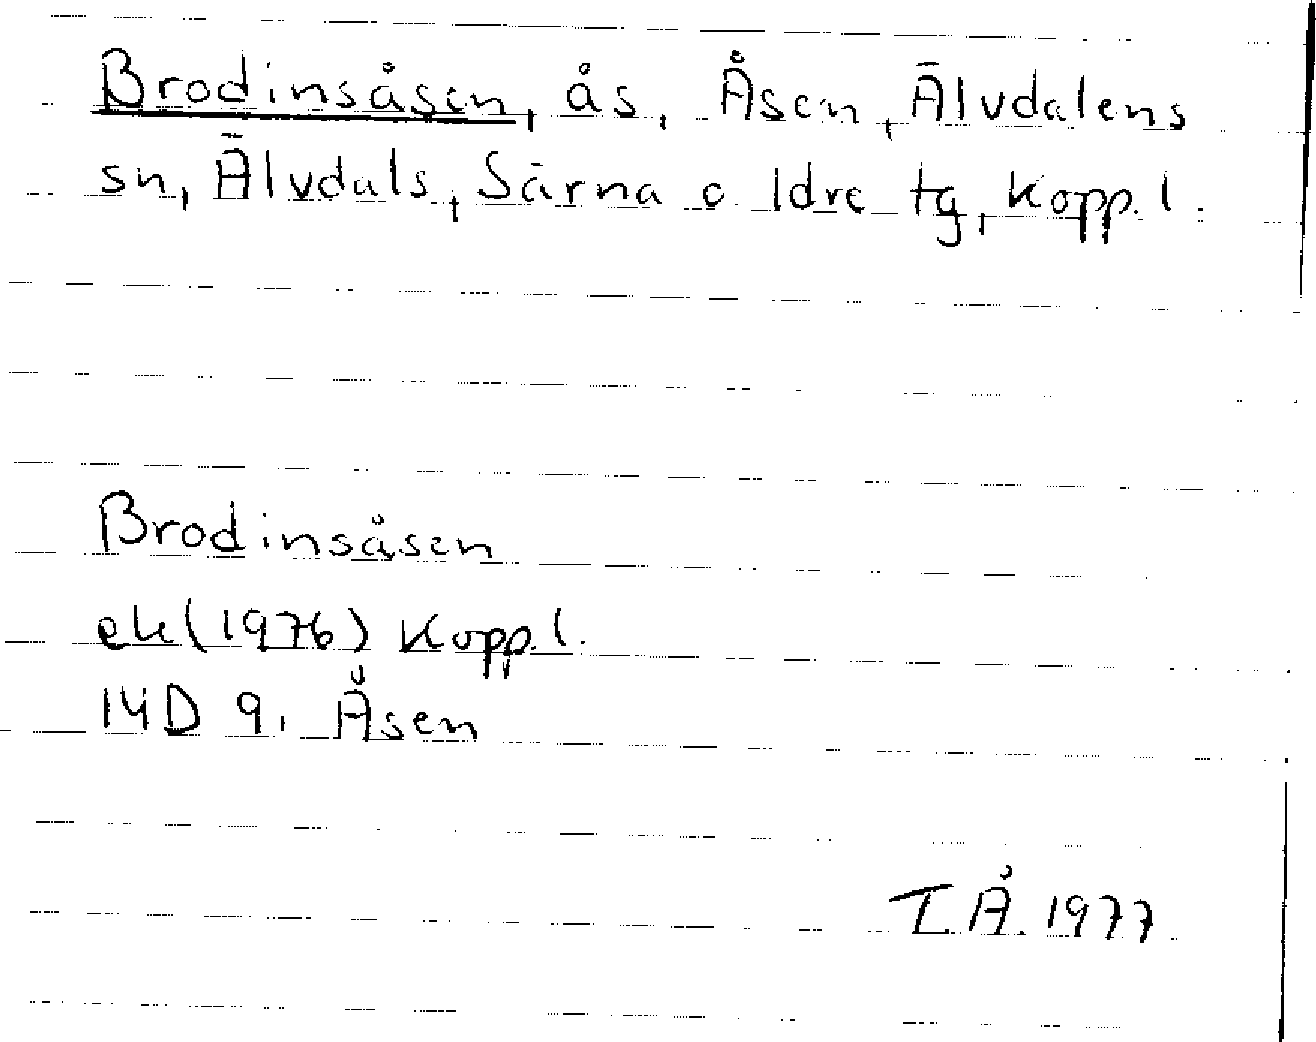 Brodinsåsen, ås, Åsen, Älvdalens
sn, Älvdals, Särna o Idre tg, Kopp. l.
Brodinsåsen
ek (1976) Kopp. l.
14D 9i Åsen
I.Å. 1977